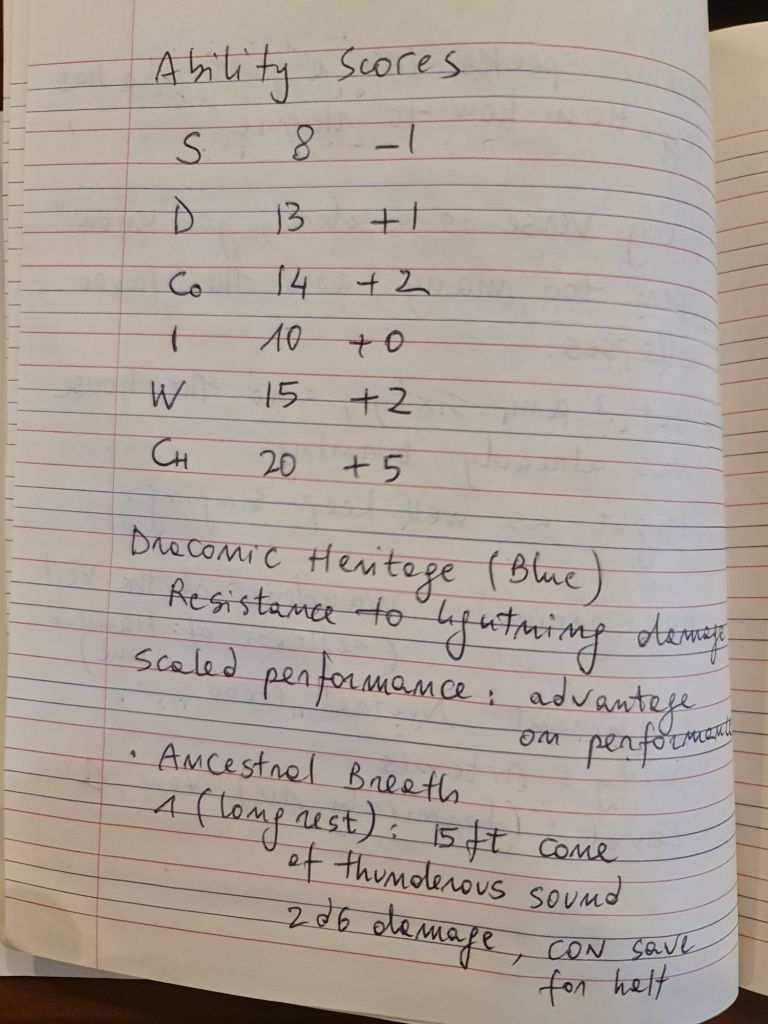 Ability Scores
S 8 -1
D 13 +1
Co 14 +2
I 10 +0
W 15 +2
CH 20 +5
Draconic Heritage (Blue)
Resistance to lightning damage
Scaled performance: advantage
on performance
· Ancestral Breath
1 (long rest): 15 ft cone
of thunderous sound
2d6 damage, CON save
for half